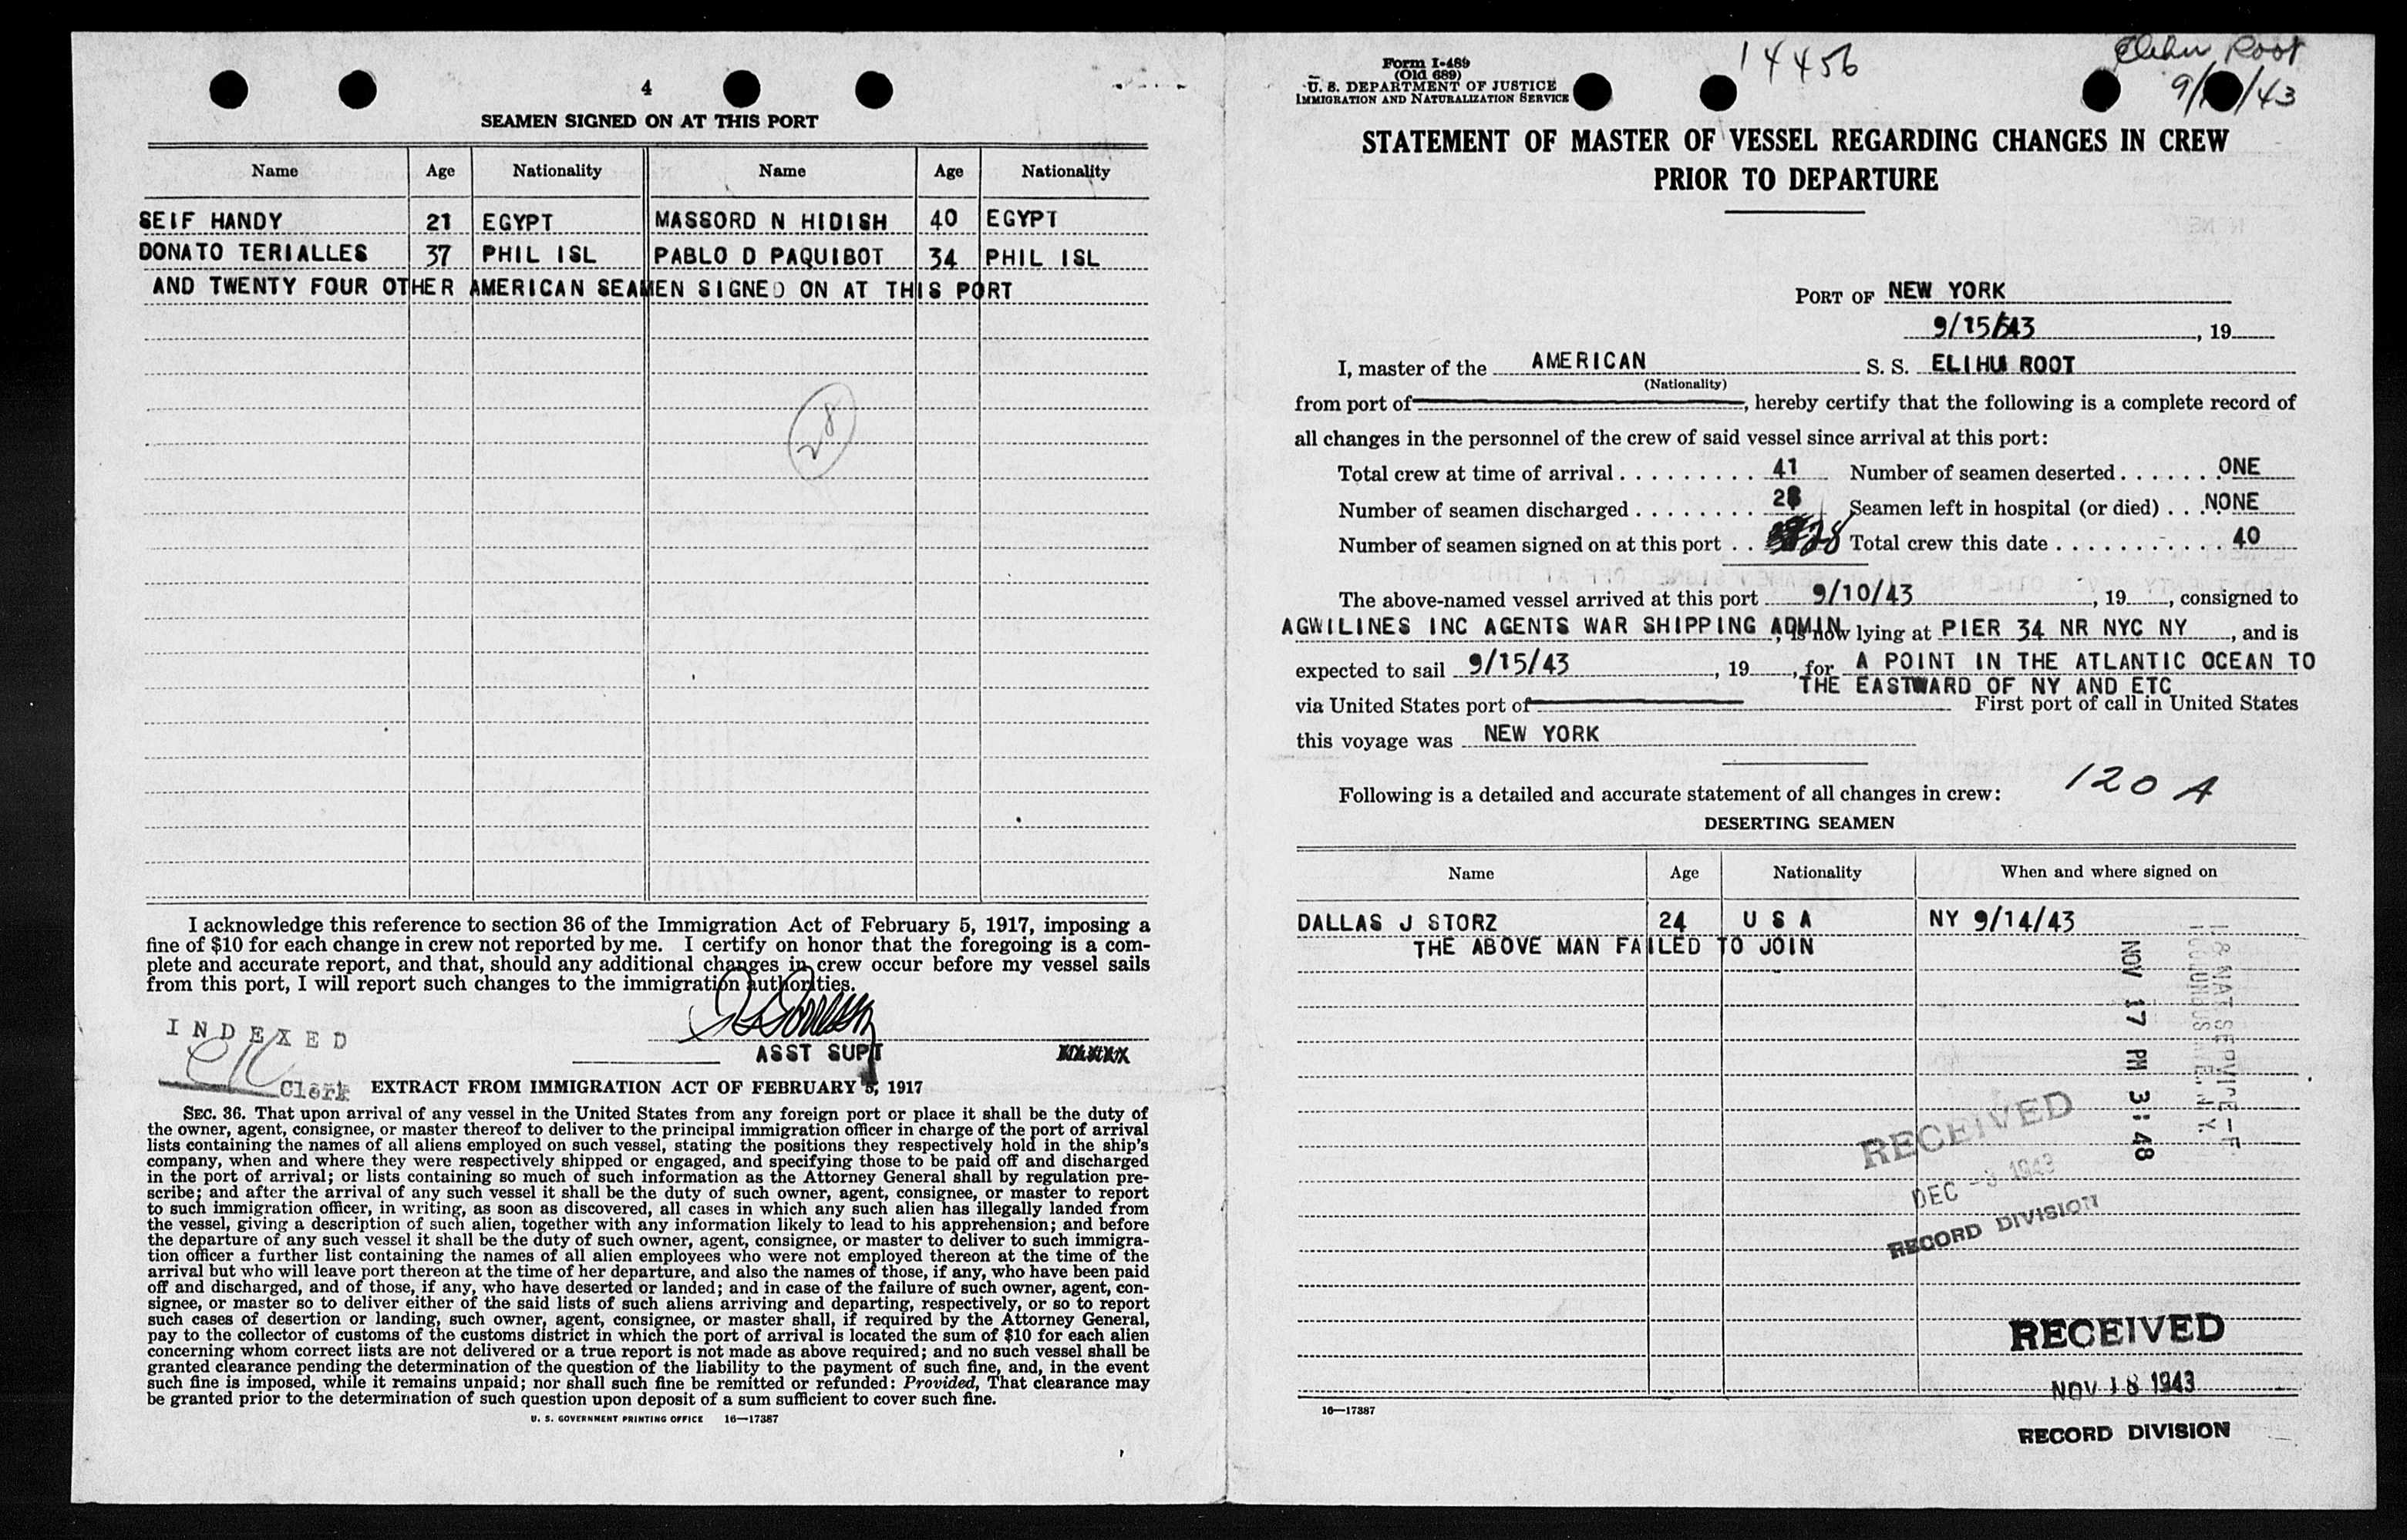 4
SEAMEN SIGNED ON AT THIS PORT
Name Age Nationality Name Age Nationality
SEIF HANDY 21 EGYPT MASSORD N HIDISH 40 EGYPT
DONATO TERIALLES 37 PHIL ISL PABLO D PAQUIBOT 34 PHIL ISL
AND TWENTY FOUR OTHER AMERICAN SEAMEN SIGNED ON AT THIS PORT
28
I acknowledge this reference to section 36 of the Immigration Act of February 5, 1917, imposing a
fine of $10 for each change in crew not reported by me. I certify on honor that the foregoing is a com-
plete and accurate report, and that, should any additional changes in crew occur before my vessel sails
from this port, I will report such changes to the immigration authorities.
INDEXED
ASST SUPT
Clerk
EXTRACT FROM IMMIGRATION ACT OF FEBRUARY 5, 1917
SEC. 36. That upon arrival of any vessel in the United States from any foreign port or place it shall be the duty of
the owner, agent, consignee, or master thereof to deliver to the principal immigration officer in charge of the port of arrival
lists containing the names of all aliens employed on such vessel, stating the positions they respectively hold in the ship's
company, when and where they were respectively shipped or engaged, and specifying those to be paid off and discharged
in the port of arrival; or lists containing so much of such information as the Attorney General shall by regulation pre-
scribe; and after the arrival of any such vessel it shall be the duty of such owner, agent, consignee, or master to report
to such immigration officer, in writing, as soon as discovered, all cases in which any such alien has illegally landed from
the vessel, giving a description of such alien, together with any information likely to lead to his apprehension; and before
the departure of any such vessel it shall be the duty of such owner, agent, consignee, or master to deliver to such immigra-
tion officer a further list containing the names of all alien employees who were not employed thereon at the time of the
arrival but who will leave port thereon at the time of her departure, and also the names of those, if any, who have been paid
off and discharged, and of those, if any, who have deserted or landed; and in case of the failure of such owner, agent, con-
signee, or master so to deliver either of the said lists of such aliens arriving and departing, respectively, or so to report
such cases of desertion or landing, such owner, agent, consignee, or master shall, if required by the Attorney General,
pay to the collector of customs of the customs district in which the port of arrival is located the sum of $10 for each alien
concerning whom correct lists are not delivered or a true report is not made as above required; and no such vessel shall be
granted clearance pending the determination of the question of the liability to the payment of such fine, and, in the event
such fine is imposed, while it remains unpaid; nor shall such fine be remitted or refunded: Provided, That clearance may
be granted prior to the determination of such question upon deposit of a sum sufficient to cover such fine.
U. S. GOVERNMENT PRINTING OFFICE 16—17387
Form I-489
(Old 689)
U. S. DEPARTMENT OF JUSTICE
IMMIGRATION AND NATURALIZATION SERVICE
14456
Elihu Root
9/ /43
STATEMENT OF MASTER OF VESSEL REGARDING CHANGES IN CREW
PRIOR TO DEPARTURE
PORT OF NEW YORK
9/15/43, 19
I, master of the AMERICAN S. S. ELIHU ROOT
(Nationality)
from port of , hereby certify that the following is a complete record of
all changes in the personnel of the crew of said vessel since arrival at this port:
Total crew at time of arrival . . . . . . . . . 41 Number of seamen deserted . . . . . . ONE
Number of seamen discharged . . . . . . . . 28 Seamen left in hospital (or died) . . . NONE
Number of seamen signed on at this port . . 28 Total crew this date . . . . . . . . . . . 40
The above-named vessel arrived at this port 9/10/43, 19, consigned to
AGWILINES INC AGENTS WAR SHIPPING ADMIN, is now lying at PIER 34 NR NYC NY, and is
expected to sail 9/15/43, 19, for A POINT IN THE ATLANTIC OCEAN TO
THE EASTWARD OF NY AND ETC
via United States port of First port of call in United States
this voyage was NEW YORK
120 A
Following is a detailed and accurate statement of all changes in crew:
DESERTING SEAMEN
Name Age Nationality When and where signed on
DALLAS J STORZ 24 U S A NY 9/14/43
THE ABOVE MAN FAILED TO JOIN
NOV 17 PM 3:48
RECEIVED
DEC -3 1943
RECORD DIVISION
RECEIVED
NOV 18 1943
RECORD DIVISION
16—17387